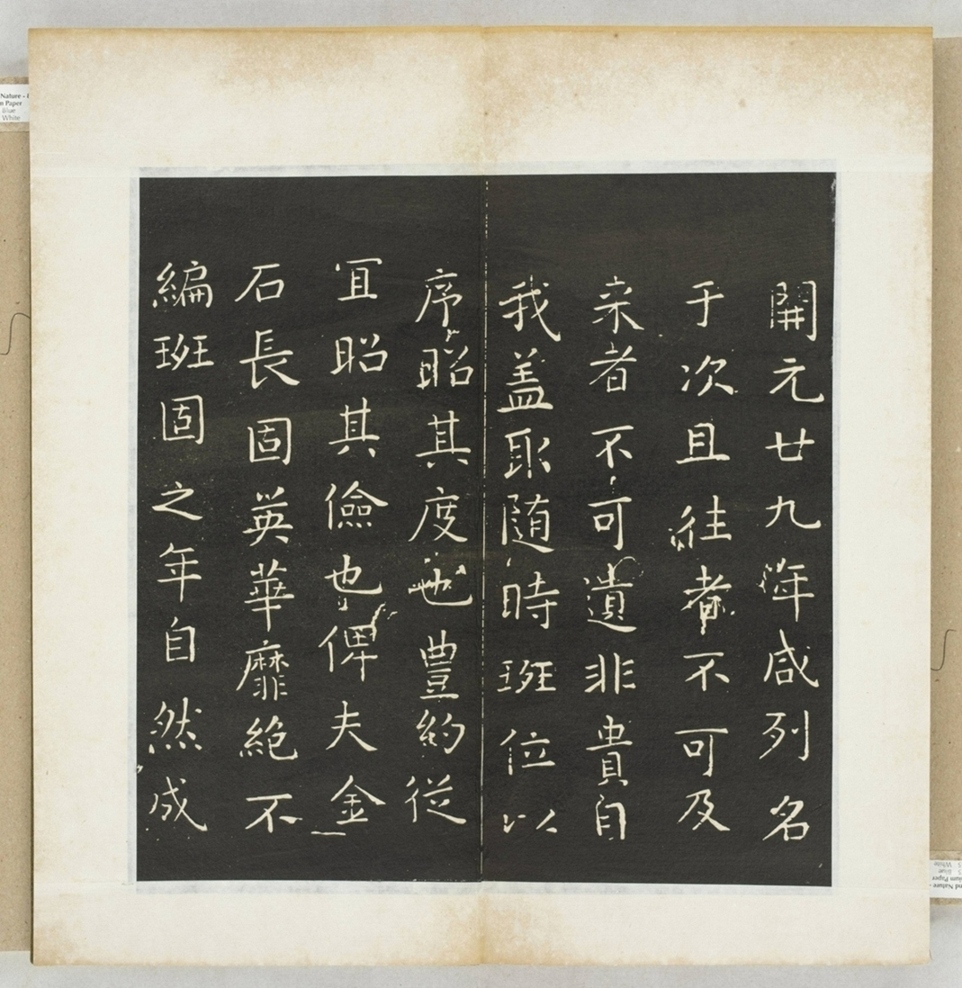 開元廿九年咸列名
于次且往者不可及
来者不可遺非貴自
我盖取随時班位以
序昭其度也豊約従
冝昭其儉也俾夫金
石長固英華靡絶不
編班固之年自然成
Nature -
Paper
Blue
White